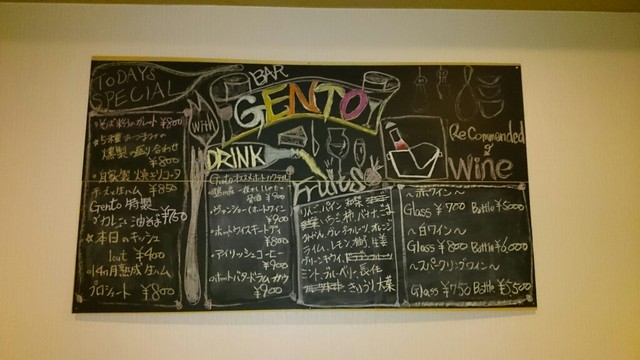 TODAYS
SPECIAL
BAR
GENTO
with
DRINK
Fruits
Recommended
Wine
・そば粉のガレット ¥800
燻製盛り合わせ
¥800
・自家製
¥850
Gento 特製
油そば ¥750
☆本日のキッシュ
1cut ¥400
・14ヵ月熟成生ハム
プロシュート ¥800
Gentoオススメホットカクテル
¥900
・ヴァンショー(ホートワイン)
¥900
・ホートウイスキートディ
¥800
・アイリッシュコーヒー
¥900
・ホートバタードラムカウ
¥900
りんご、パイン
いちご、柿、バナナ
グレープフルーツ、オレンジ
ライム、レモン、生姜
グリーンキウイ
ミント、ブルーベリー
きゅうり、大葉
～赤ワイン～
Glass ¥700 Bottle ¥5000
～白ワイン～
Glass ¥800 Bottle ¥6,000
～スパークリングワイン～
Glass ¥750 Bottle ¥5500